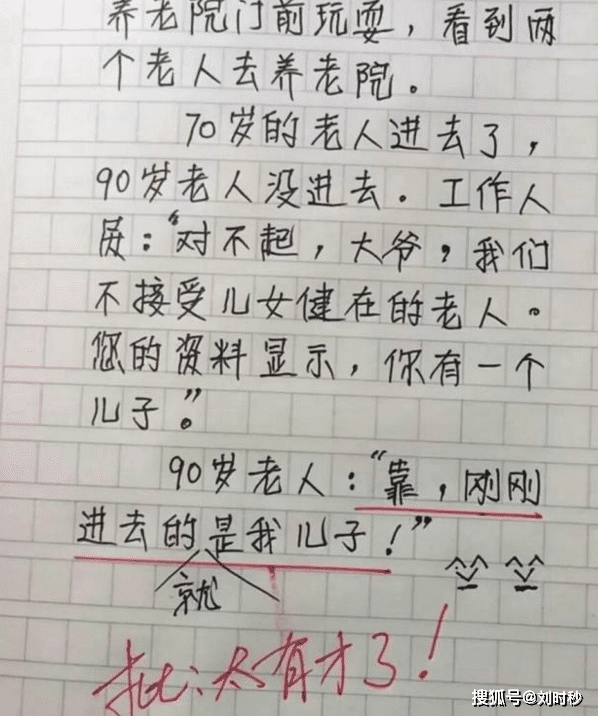 养老院门前玩耍，看到两
个老人去养老院。
70岁的老人进去了，
90岁老人没进去．工作人
员："对不起，大爷，我们
不接受儿女健在的老人。
您的资料显示，你有一个
儿子"。
90岁老人："靠，刚刚
进去的是我儿子！"
就
批：太有才了！
搜狐号@刘时秒